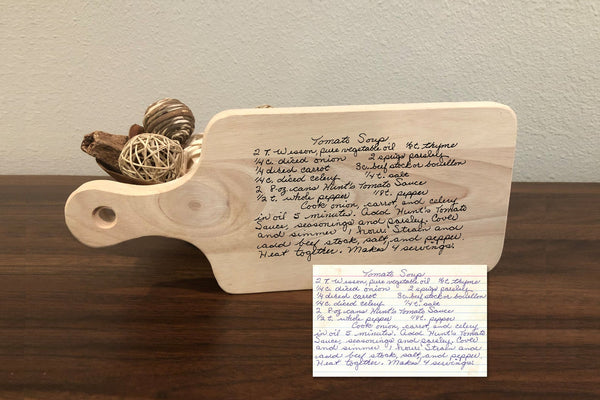 Tomato Soup
2 T. Wesson, pure vegetable oil ⅛t. thyme
¼ c. diced onion 2 sprigs parsley
¼ diced carrot 3c. beef stock or bouillon
¼ c. diced celery ¼ t. salt
2 8 oz. cans Hunt's Tomato Sauce
½ t. whole pepper ⅛ t. pepper
Cook onion, carrot, and celery
in oil 5 minutes. Add Hunt's Tomato
Sauce, seasonings and parsley. Cover
and simmer 1 hour. Strain and
add beef stock, salt, and pepper.
Heat together. Makes 4 servings.
Tomato Soup
2 T. Wesson, pure vegetable oil ⅛t. thyme
¼ c. diced onion 2 sprigs parsley
¼ diced carrot 3c. beef stock or bouillon
¼ c. diced celery ¼ t. salt
2 8 oz. cans Hunt's Tomato Sauce
½ t. whole pepper ⅛ t. pepper
Cook onion, carrot, and celery
in oil 5 minutes. Add Hunt's Tomato
Sauce, seasonings and parsley. Cover
and simmer 1 hour. Strain and
add beef stock, salt, and pepper.
Heat together. Makes 4 servings.